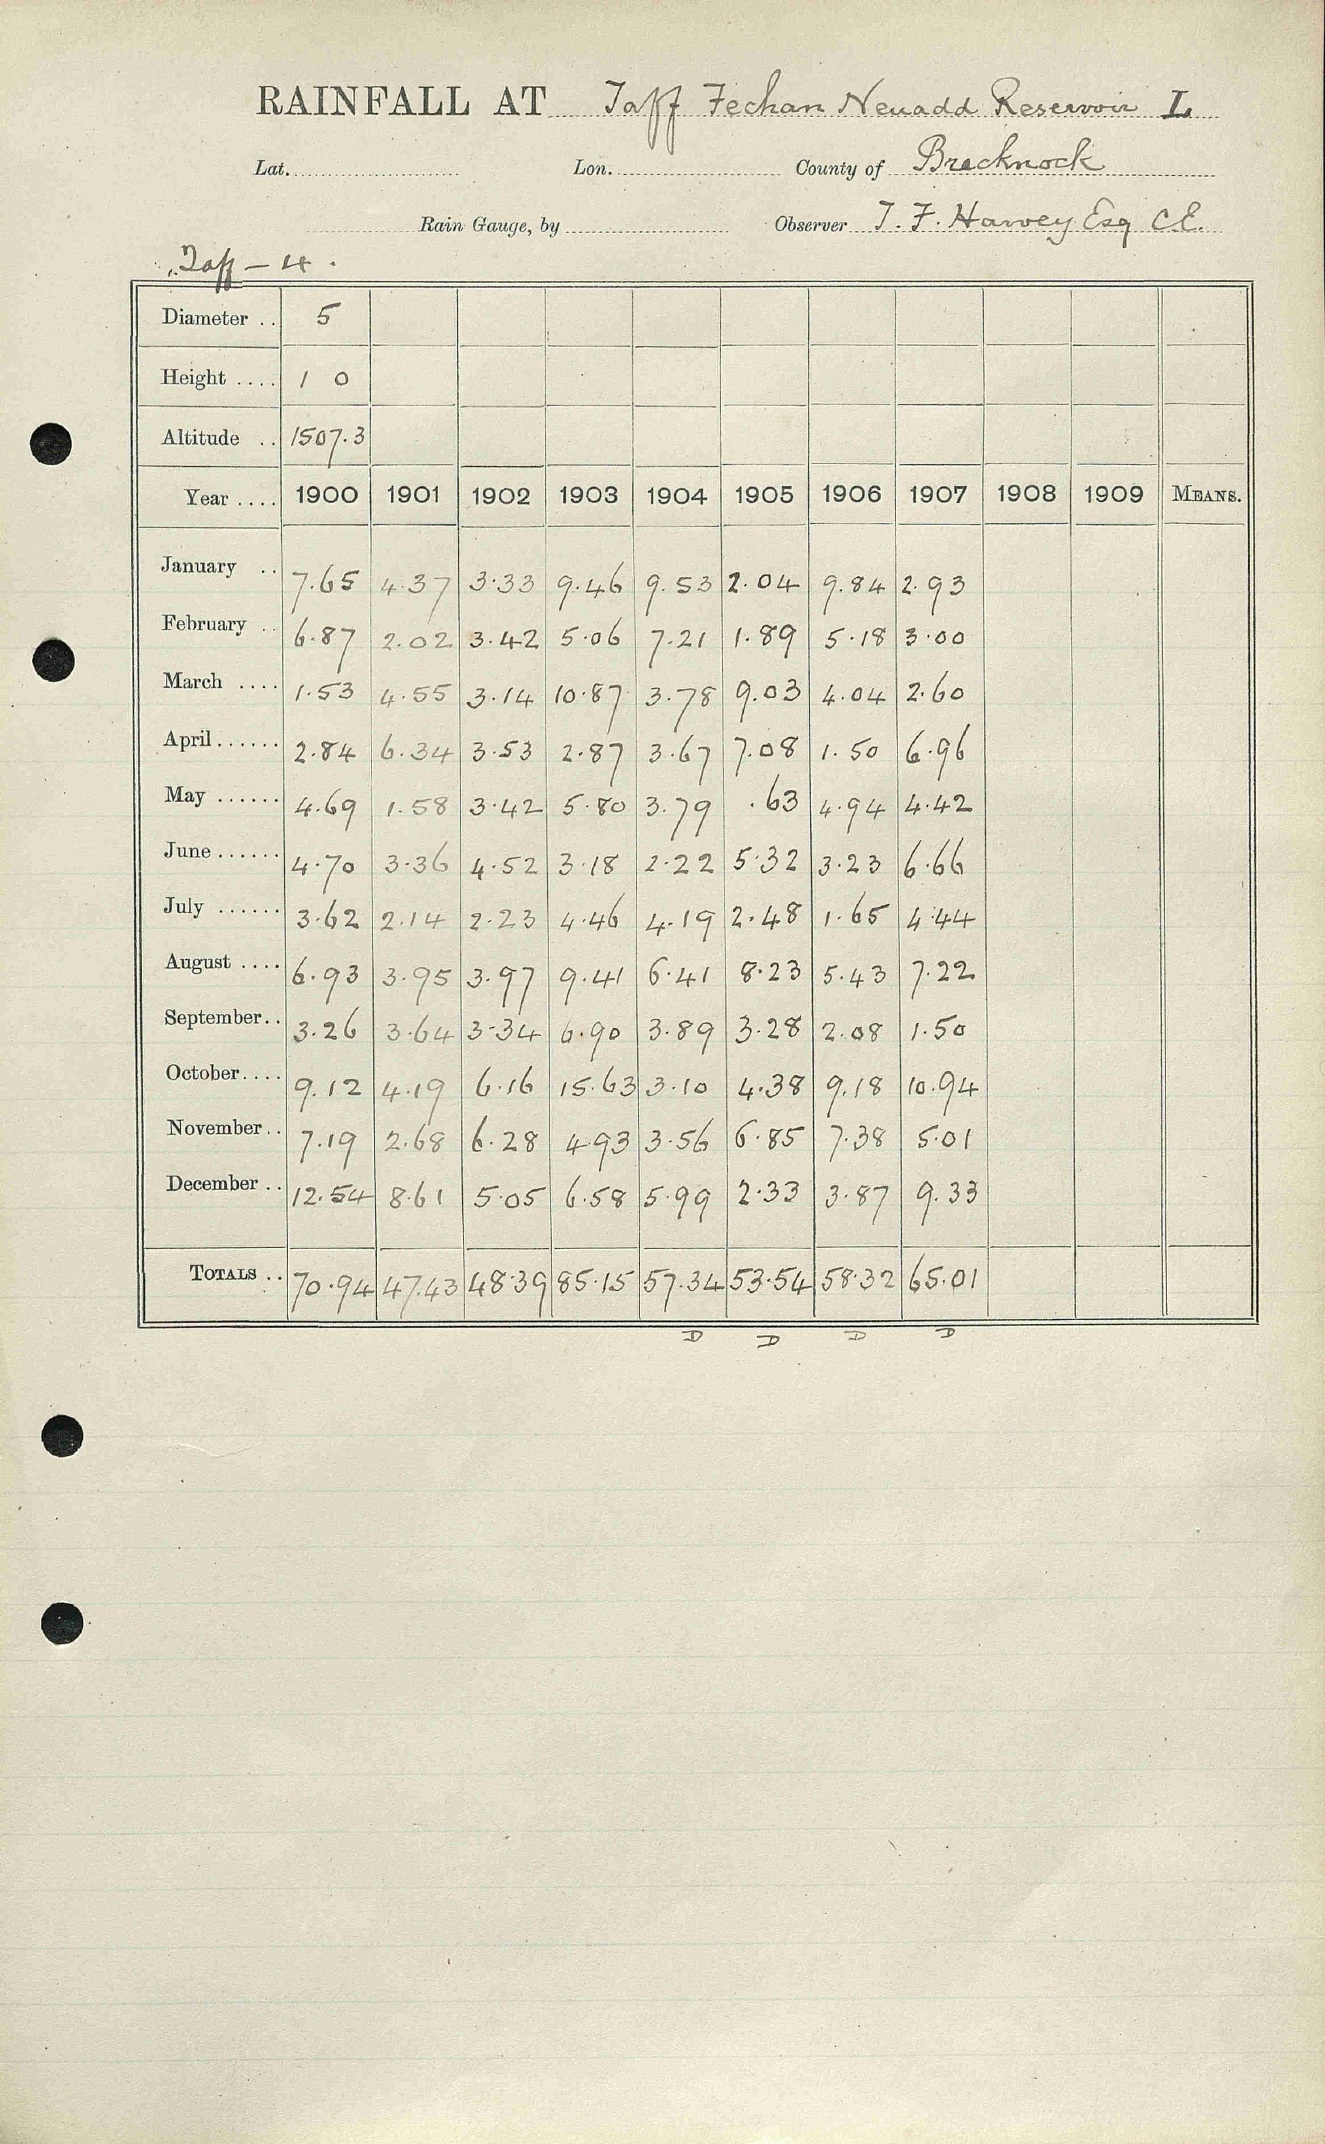 RAINFALL AT Taff Fechan Neuadd Reservoir L
Lat. Lon. County of Brecknock
Rain Gauge, by Observer T. F. Harvey Esq C.E.
Taff - 4.
Diameter .. 5
Height .... 1 0
Altitude .. 1507.3
Year .... 1900 1901 1902 1903 1904 1905 1906 1907 1908 1909 MEANS.
January .. 7.65 4.37 3.33 9.46 9.53 2.04 9.84 2.93
February .. 6.87 2.02 3.42 5.06 7.21 1.89 5.18 3.00
March .... 1.53 4.55 3.14 10.87 3.78 9.03 4.04 2.60
April...... 2.84 6.34 3.53 2.87 3.67 7.08 1.50 6.96
May ...... 4.69 1.58 3.42 5.80 3.79 .63 4.94 4.42
June...... 4.70 3.36 4.52 3.18 2.22 5.32 3.23 6.66
July ...... 3.62 2.14 2.23 4.46 4.19 2.48 1.65 4.44
August .... 6.93 3.95 3.97 9.41 6.41 8.23 5.43 7.22
September.. 3.26 3.64 3.34 6.90 3.89 3.28 2.08 1.50
October.... 9.12 4.19 6.16 15.63 3.10 4.38 9.18 10.94
November.. 7.19 2.68 6.28 4.93 3.56 6.85 7.38 5.01
December .. 12.54 8.61 5.05 6.58 5.99 2.33 3.87 9.33
TOTALS .. 70.94 47.43 48.39 85.15 57.34 53.54 58.32 65.01
D D D D